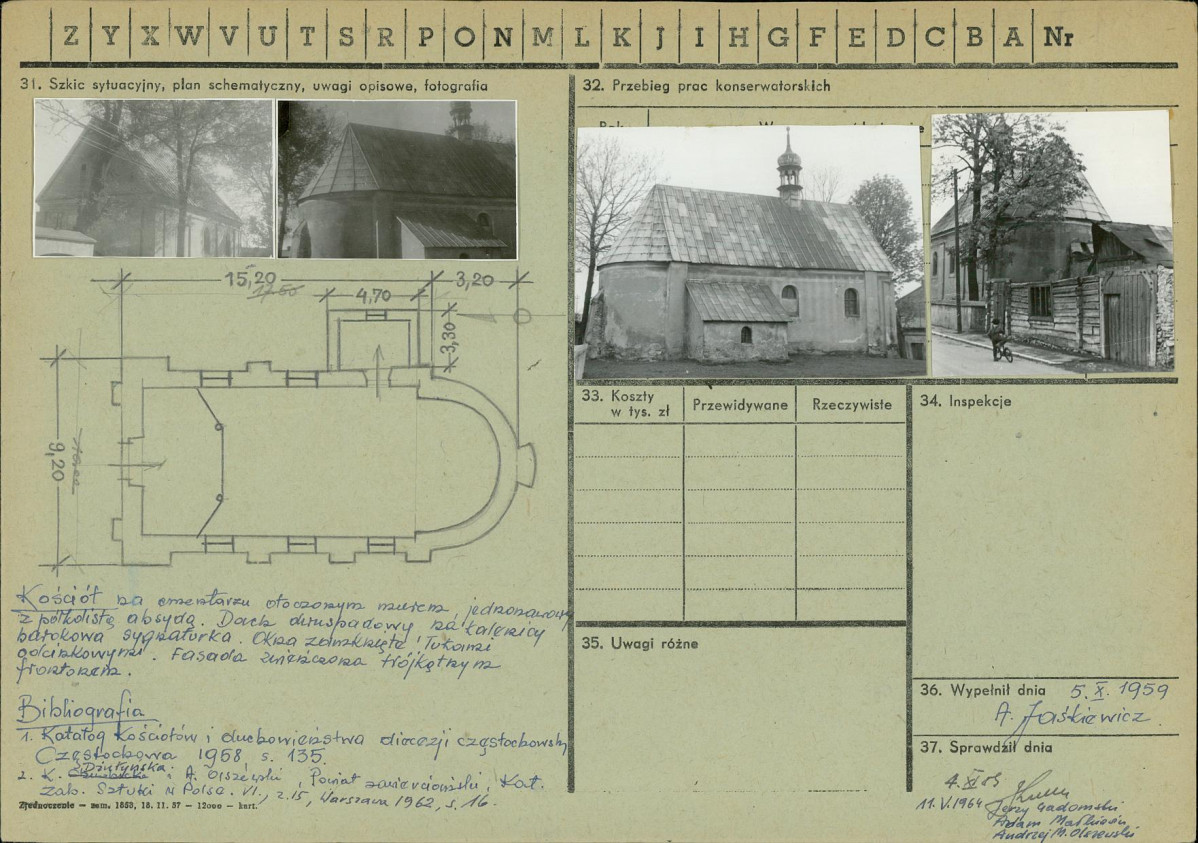 Z Y X W V U T S R P O N M L K J I H G F E D C B A Nr
31. Szkic sytuacyjny, plan schematyczny, uwagi opisowe, fotografia
15,20
3,20
4,70
3,30
9,20
Kościół na cmentarzu otoczonym murem, jednonawowy
z półkolistą absydą. Dach dwuspadowy, na kalenicy
barokowa sygnaturka. Okna zamknięte łukami
odcinkowymi. Fasada zwieńczona trójkątnym
frontonem.
Bibliografia
1. Katalog kościołów i duchowieństwa diecezji częstochowskiej
Częstochowa 1958 s. 135.
2. K. Dziutyńska i A. Olszewski, Powiat zawierciański, Kat.
Zab. Sztuki w Polsce. VI., z. 15, Warszawa 1962, s. 16.
Zjednoczenie — zam. 1858, 18. 11. 57 — 12000 — kart.
32. Przebieg prac konserwatorskich
33. Koszty
w tys. zł
Przewidywane
Rzeczywiste
34. Inspekcje
35. Uwagi różne
36. Wypełnił dnia 5. X. 1959
A. Jaśkiewicz
37. Sprawdził dnia
4. XI 59
11. V. 1964 Jerzy Gadomski
Adam Małkiewicz
Andrzej M. Olszewski